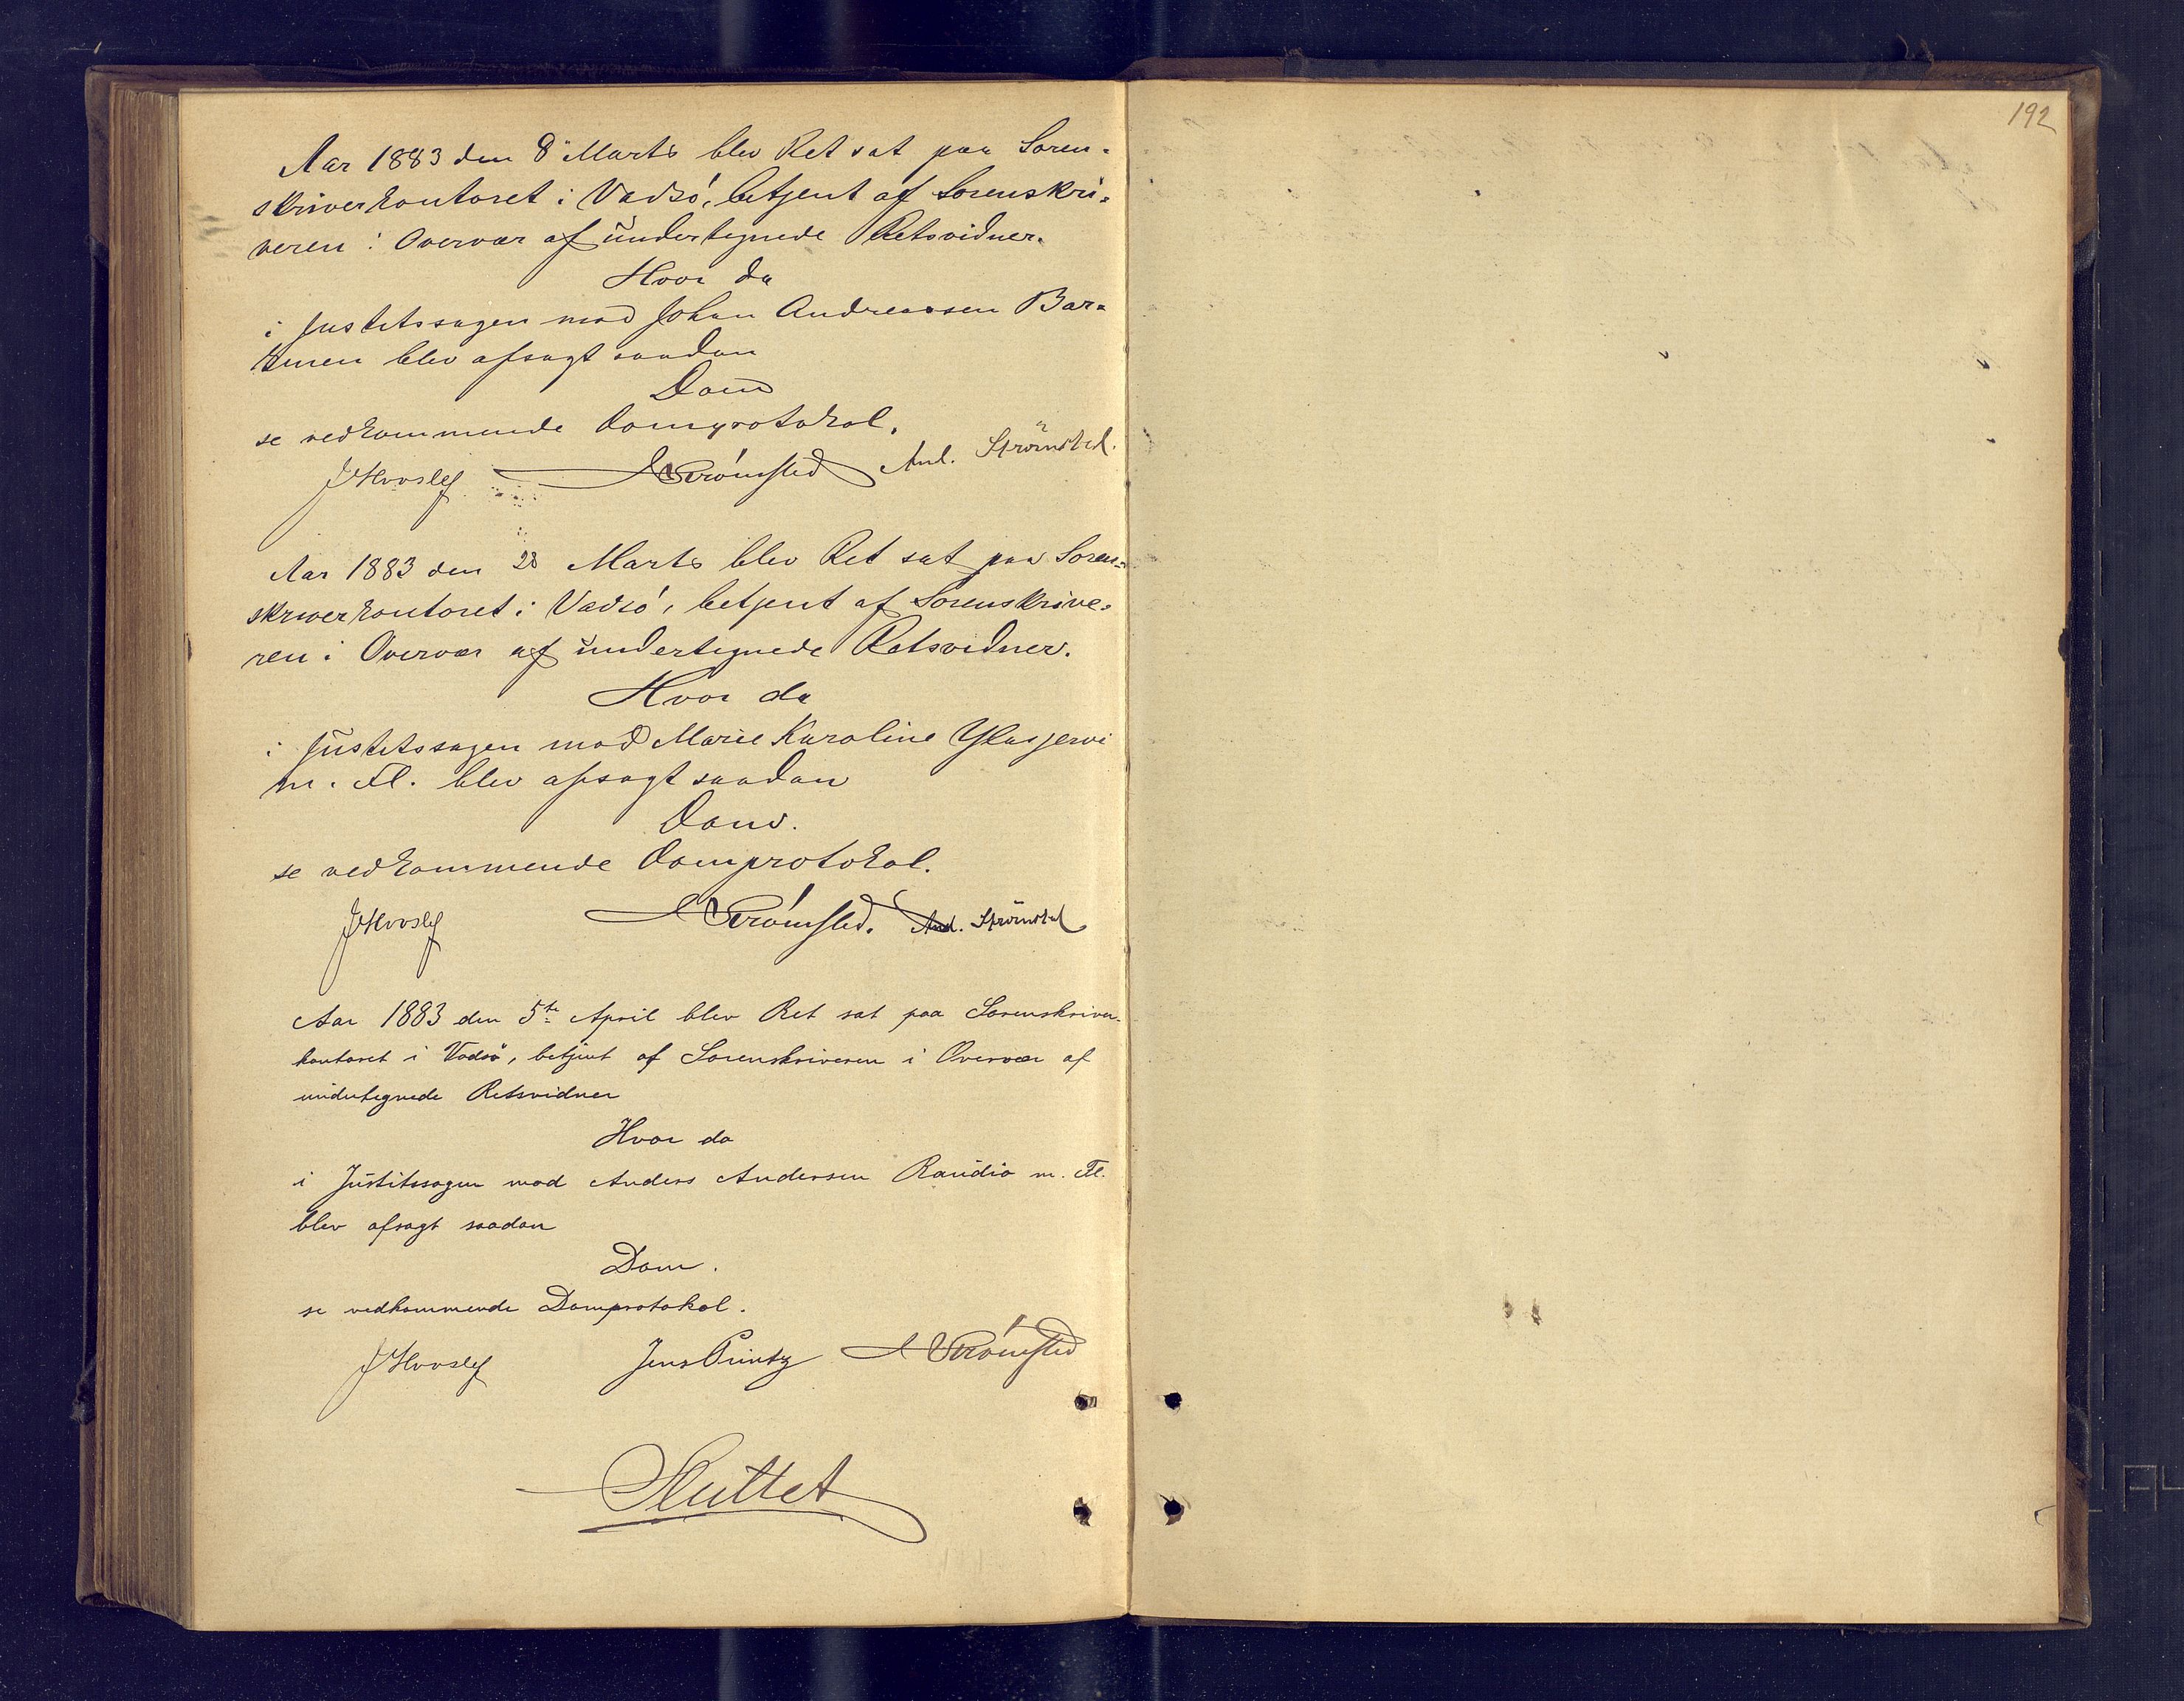 192
Aar 1883 den 8 Marts blev Ret sat paa Soren-
skriverkontoret i Vadsö, betjent af Sorenskri-
veren i Overvær af undertegnede Retsvidner.
Hvor da
i Justitssagen mod Johan Andreassen Bar-
blev afsagt saadan
Dom
se vedkommende Domprotokol.
JHvoslef Strömsted And. Strömsted.
Aar 1883 den 28 Marts blev Ret sat paa Soren-
skriverkontoret i Vadsö, betjent af Sorenskrive-
ren i Overvær af undertegnede Retsvidner.
Hvor da
i Justitssagen mod Marie Karoline
m. Fl. blev afsagt saadan
Dom.
se vedkommende Domprotokol.
JHvoslef Strömsted. And. Strömsted
Aar 1883 den 5te April blev Ret sat paa Sorenskriver-
kontoret i Vadsö, betjent af Sorenskriveren i Overvær af
undertegnede Retsvidner
Hvor da
i Justitssagen mod Anders Andersen Raudio m. Fl.
blev afsagt saadan
Dom.
se vedkommende Domprotokol.
JHvoslef Jens Printz Strömsted
Sluttet